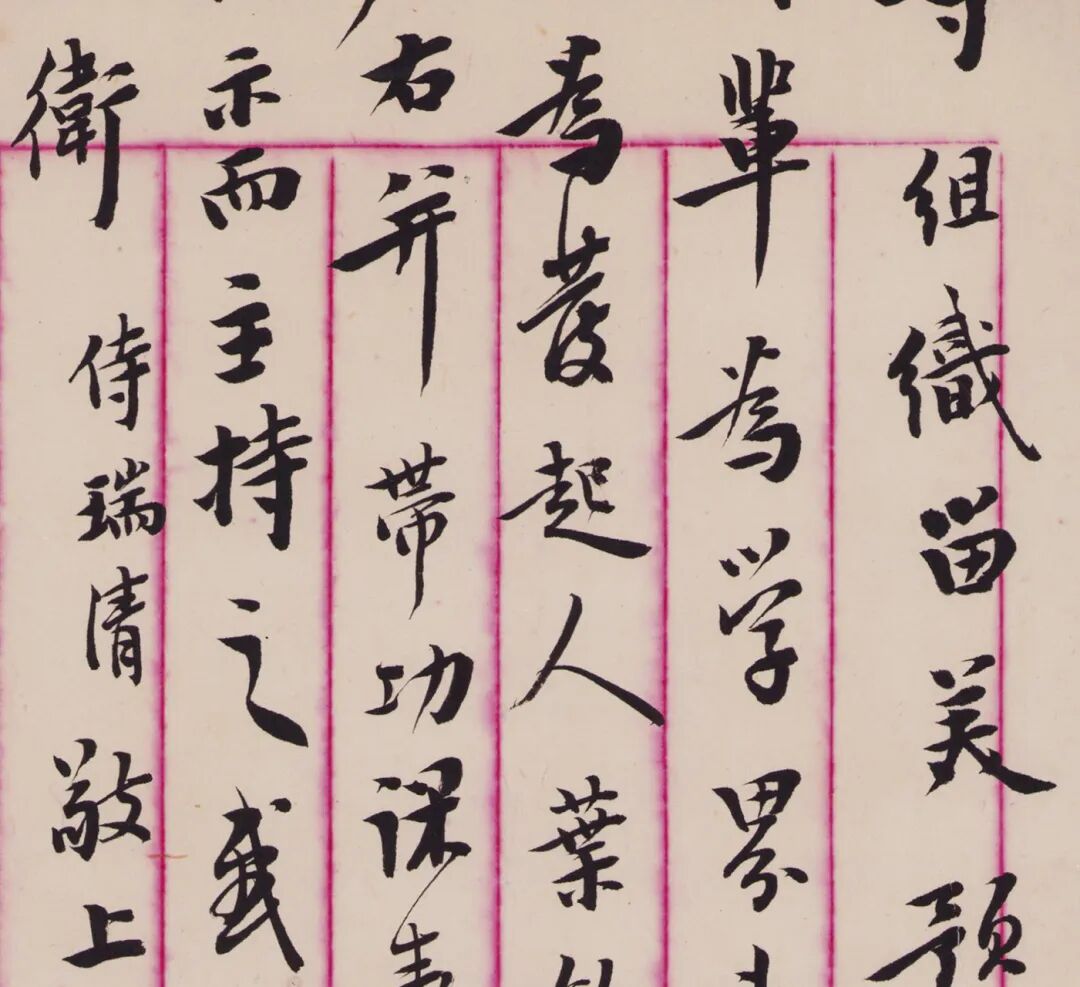 組織留美預
輩為學界
為發起人葉
右并帶功課
示而主持之感
衛侍瑞清敬上